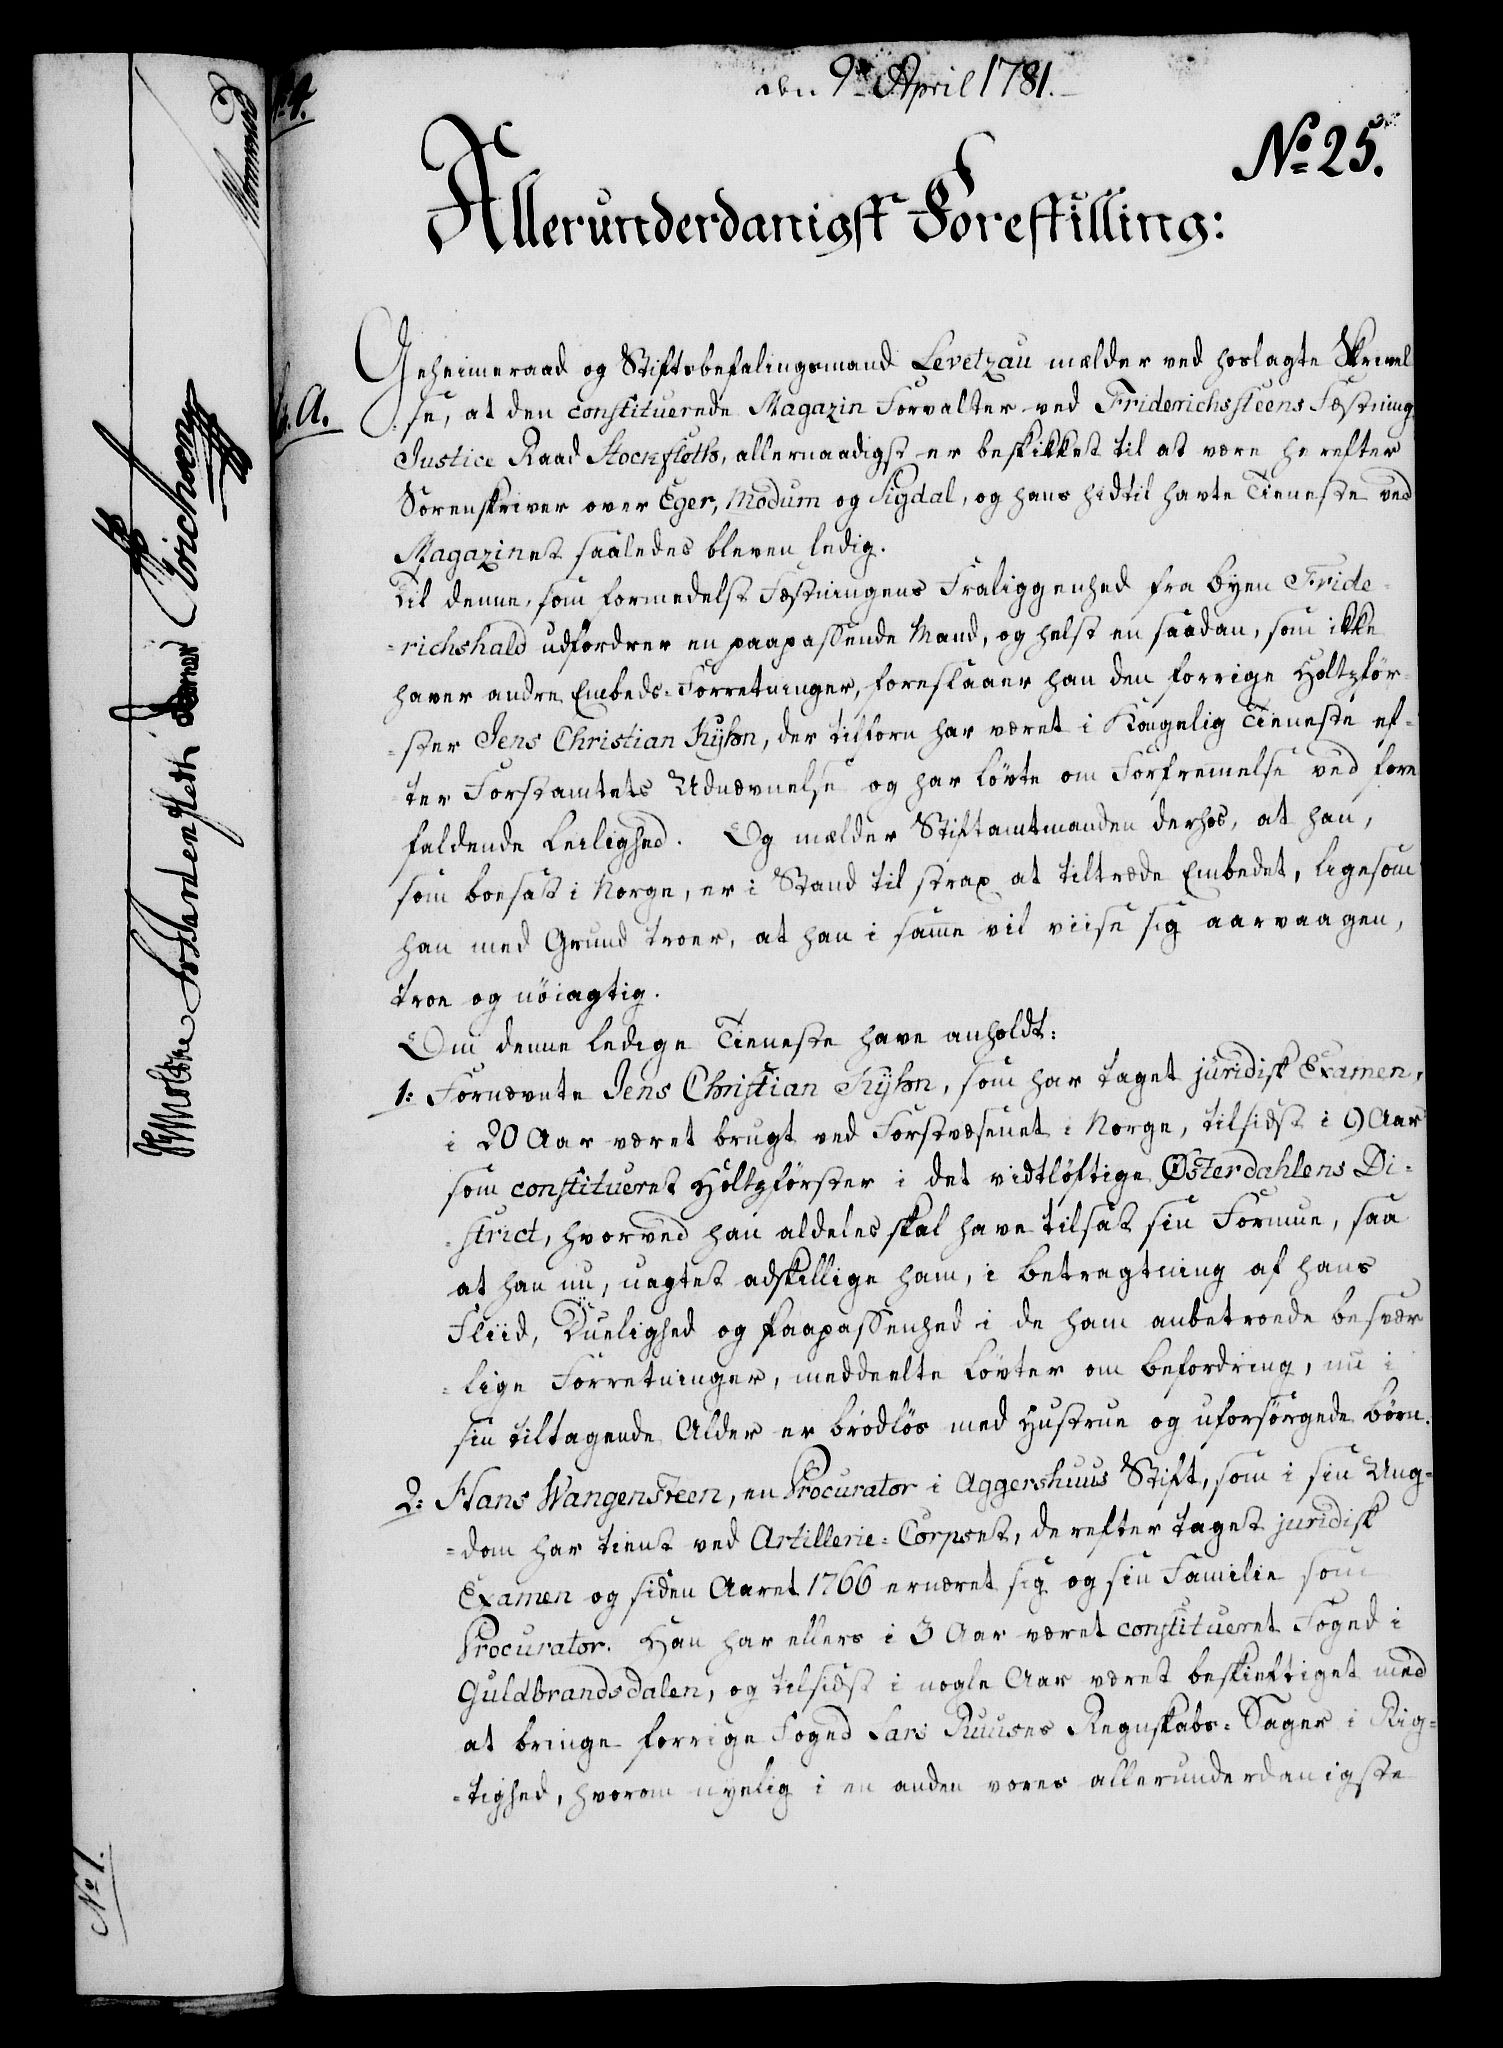 den 9de April 1781.
No 25.
Allerunderdanigst Forestilling:
Geheimeraad og Stiftsbefalingsmand Levetzau mælder ved hoslagte Skrivel
A.
se, at den constituerede Magazin Forvalter ved Friderichssteens Fæstning
Justice Raad Stockfleth, allernaadigst er beskikket til at være herefter
Sorenskriver over Eger, Modum og Sigdal, og hans hidtil havte Tieneste ved
Magazinet saaledes bleven ledig.
Til denne, som formedelst Fæstningens Fraliggenhed fra Byen Fride-
-richshald udfordrer en paapassende Mand, og helst en saadan, som ikke
haver andre Embeds-Forretninger, foreslaaer han den forrige Holtzför-
-ster Jens Christian Kyhn, der tilforn har været i Kongelig Tieneste ef-
ter Forstamtets Udnævnelse og har Løvte om Forfremmelse ved fore
faldende Leilighed. Og mælder Stiftamtmanden derhos, at han,
som boesat i Norge, er i Stand til strax at tiltræde Embedet, ligesom
han med Grund troer, at han i samme vil viise sig aarvaagen,
troe og nöiagtig.
Om denne ledige Tieneste have anholdt:
1: Fornævnte Jens Christian Kyhn, som har taget juridisk Examen,
i 20 Aar været brugt ved Forstvæsenet i Norge, tilsidst i 9 Aar
som constitueret Holtzförster i det vidtløftige Østerdahlens Di-
-strict, hvorved han aldeles skal have tilsat sin Formue, saa
at han nu, uagtet adskillige ham, i Betragtning af hans
Fliid, Duelighed og Paapassenhed i de ham anbetroede besvær
-lige Forretninger, meddeelte Løvter om Befordring, nu i
sin tiltagende Alder er brödlös med Hustrue og uforsörgede Børn.
2: Hans Wangensteen, en Procurator i Aggershuus Stift, som i sin Ung-
-dom har tient ved Artillerie-Corpset, derefter taget juridisk
Examen og siden Aaret 1766 ernæret sig og sin Familie som
Procurator. Han har ellers i 3 Aar været constitueret Foged i
Guldbrandsdalen, og tilsidst i nogle Aar været beskieftiget med
at bringe forrige Foged Lars Ruuses Regnskabs-Sager i Rig-
-tighed, hvorom nyelig i en anden vores allerunderdanigste
No 1.